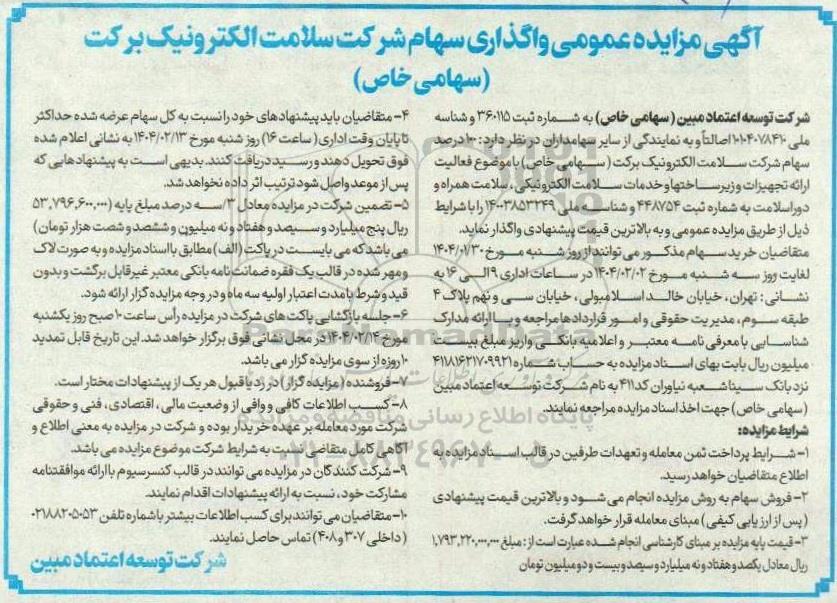 آگهی مزایده عمومی واگذاری سهام شرکت سلامت الکترونیک برکت
(سهامی خاص)
شرکت توسعه اعتماد مبین (سهامی خاص) به شماره ثبت ۳۶۰۱۱۵ و شناسه
ملی ۱۰۱۰۴۰۷۸۴۱۰ اصالتاً و به نمایندگی از سایر سهامداران در نظر دارد: ۱۰۰ درصد
سهام شرکت سلامت الکترونیک برکت (سهامی خاص) با موضوع فعالیت
ارائه تجهیزات و زیرساختها و خدمات سلامت الکترونیکی، سلامت همراه و
دوراسلامت به شماره ثبت ۴۴۸۷۵۴ و شناسه ملی ۱۴۰۰۳۸۵۳۲۴۹ را با شرایط
ذیل از طریق مزایده عمومی و به بالاترین قیمت پیشنهادی واگذار نماید.
متقاضیان خرید سهام مذکور می توانند از روز شنبه مورخ ۱۴۰۴/۰۱/۳۰
لغایت روز سه شنبه مورخ ۱۴۰۴/۰۲/۰۲ در ساعات اداری ۹ الی ۱۶ به
نشانی: تهران، خیابان خالد اسلامبولی، خیابان سی و نهم پلاک ۴
طبقه سوم، مدیریت حقوقی و امور قراردادها مراجعه و با ارائه مدارک
شناسایی یا معرفی نامه معتبر و اعلامیه بانکی واریز مبلغ بیست
میلیون ریال بابت بهای اسناد مزایده به حساب شماره ۴۱۱۸۱۶۲۱۷۰۹۹۲۱
نزد بانک سینا شعبه نیاوران کد ۴۱۱ به نام شرکت توسعه اعتماد مبین
(سهامی خاص) جهت اخذ اسناد مزایده مراجعه نمایند.
شرایط مزایده:
۱- شرایط پرداخت ثمن معامله و تعهدات طرفین در قالب اسناد مزایده به
اطلاع متقاضیان خواهد رسید.
۲- فروش سهام به روش مزایده انجام می شود و بالاترین قیمت پیشنهادی
(پس از ارزیابی کیفی) مبنای معامله قرار خواهد گرفت.
۳- قیمت پایه مزایده بر مبنای کارشناسی انجام شده عبارت است از: مبلغ ۱,۷۹۳,۲۲۰,۰۰۰,۰۰۰
ریال معادل یکصد و هفتاد و نه میلیارد و سیصد و بیست و دو میلیون تومان
۴- متقاضیان باید پیشنهادهای خود را نسبت به کل سهام عرضه شده حداکثر
تا پایان وقت اداری (ساعت ۱۶) روز شنبه مورخ ۱۴۰۴/۰۲/۱۳ به نشانی اعلام شده
فوق تحویل دهند و رسید دریافت کنند. بدیهی است به پیشنهادهایی که
پس از موعد واصل شود ترتیب اثر داده نخواهد شد.
۵- تضمین شرکت در مزایده معادل ۳/سه درصد مبلغ پایه (۵۳,۷۹۶,۶۰۰,۰۰۰
ریال پنج میلیارد و سیصد و هفتاد و نه میلیون و ششصد و شصت هزار تومان)
می باشد که می بایست در پاکت (الف) مطابق با اسناد مزایده و به صورت لاک
و مهر شده در قالب یک فقره ضمانت نامه بانکی معتبر غیرقابل برگشت و بدون
قید و شرط با مدت اعتبار اولیه سه ماه و در وجه مزایده گزار ارائه شود.
۶- جلسه بازگشایی پاکت های شرکت در مزایده رأس ساعت ۱۰ صبح روز یکشنبه
مورخ ۱۴۰۴/۰۲/۱۴ در محل نشانی فوق برگزار خواهد شد. این تاریخ قابل تمدید
۱۰ روزه از سوی مزایده گزار می باشد.
۷- فروشنده (مزایده گزار) در رد یا قبول هر یک از پیشنهادات مختار است.
۸- کسب اطلاعات کافی و وافی از وضعیت مالی، اقتصادی، فنی و حقوقی
شرکت مورد معامله بر عهده خریدار بوده و شرکت در مزایده به معنی اطلاع و
آگاهی کامل متقاضی نسبت به شرایط شرکت موضوع مزایده می باشد.
۹- شرکت کنندگان در مزایده می توانند در قالب کنسرسیوم با ارائه موافقتنامه
مشارکت خود، نسبت به ارائه پیشنهادات اقدام نمایند.
۱۰- متقاضیان می توانند برای کسب اطلاعات بیشتر با شماره تلفن ۰۲۱۸۸۲۰۵۰۵۳
(داخلی ۳۰۷ و ۴۰۸) تماس حاصل نمایند.
شرکت توسعه اعتماد مبین
ParsNamadData
پایگاه اطلاع رسانی مناقصه و مزایده